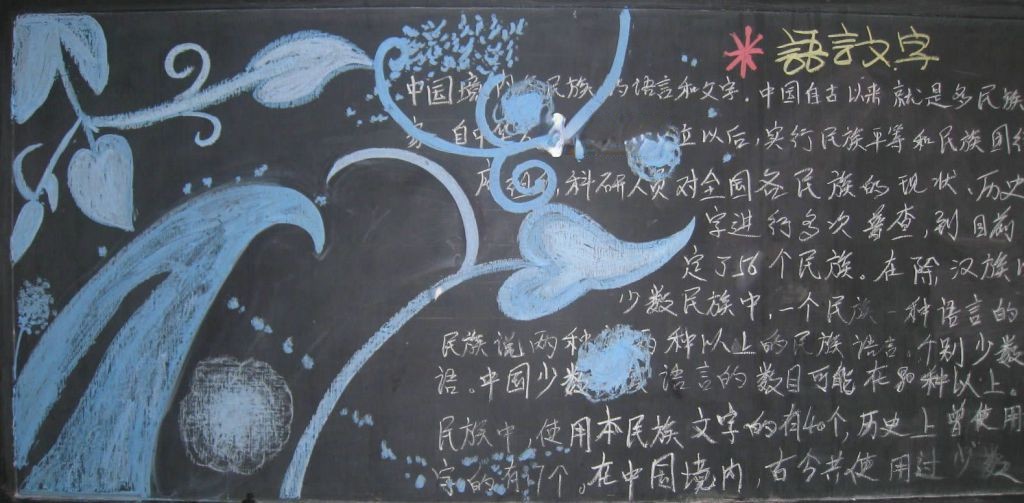 語言文字
中国境内 民族的语言和文字.中国自古以来就是多民族
家 自中 立以后,实行民族平等和民族团结
科研人员对全国各民族的现状、历史
字进行多次普查,到目前
定了56个民族。在除汉族以
少数民族中,一个民族一种语言的
民族说两种 两种以上的民族语言,个别少数
语。中国少数 语言的数目可能在80种以上。
民族中,使用本民族文字的有40个,历史上曾使用
字的有17个。在中国境内,古今共使用过少数